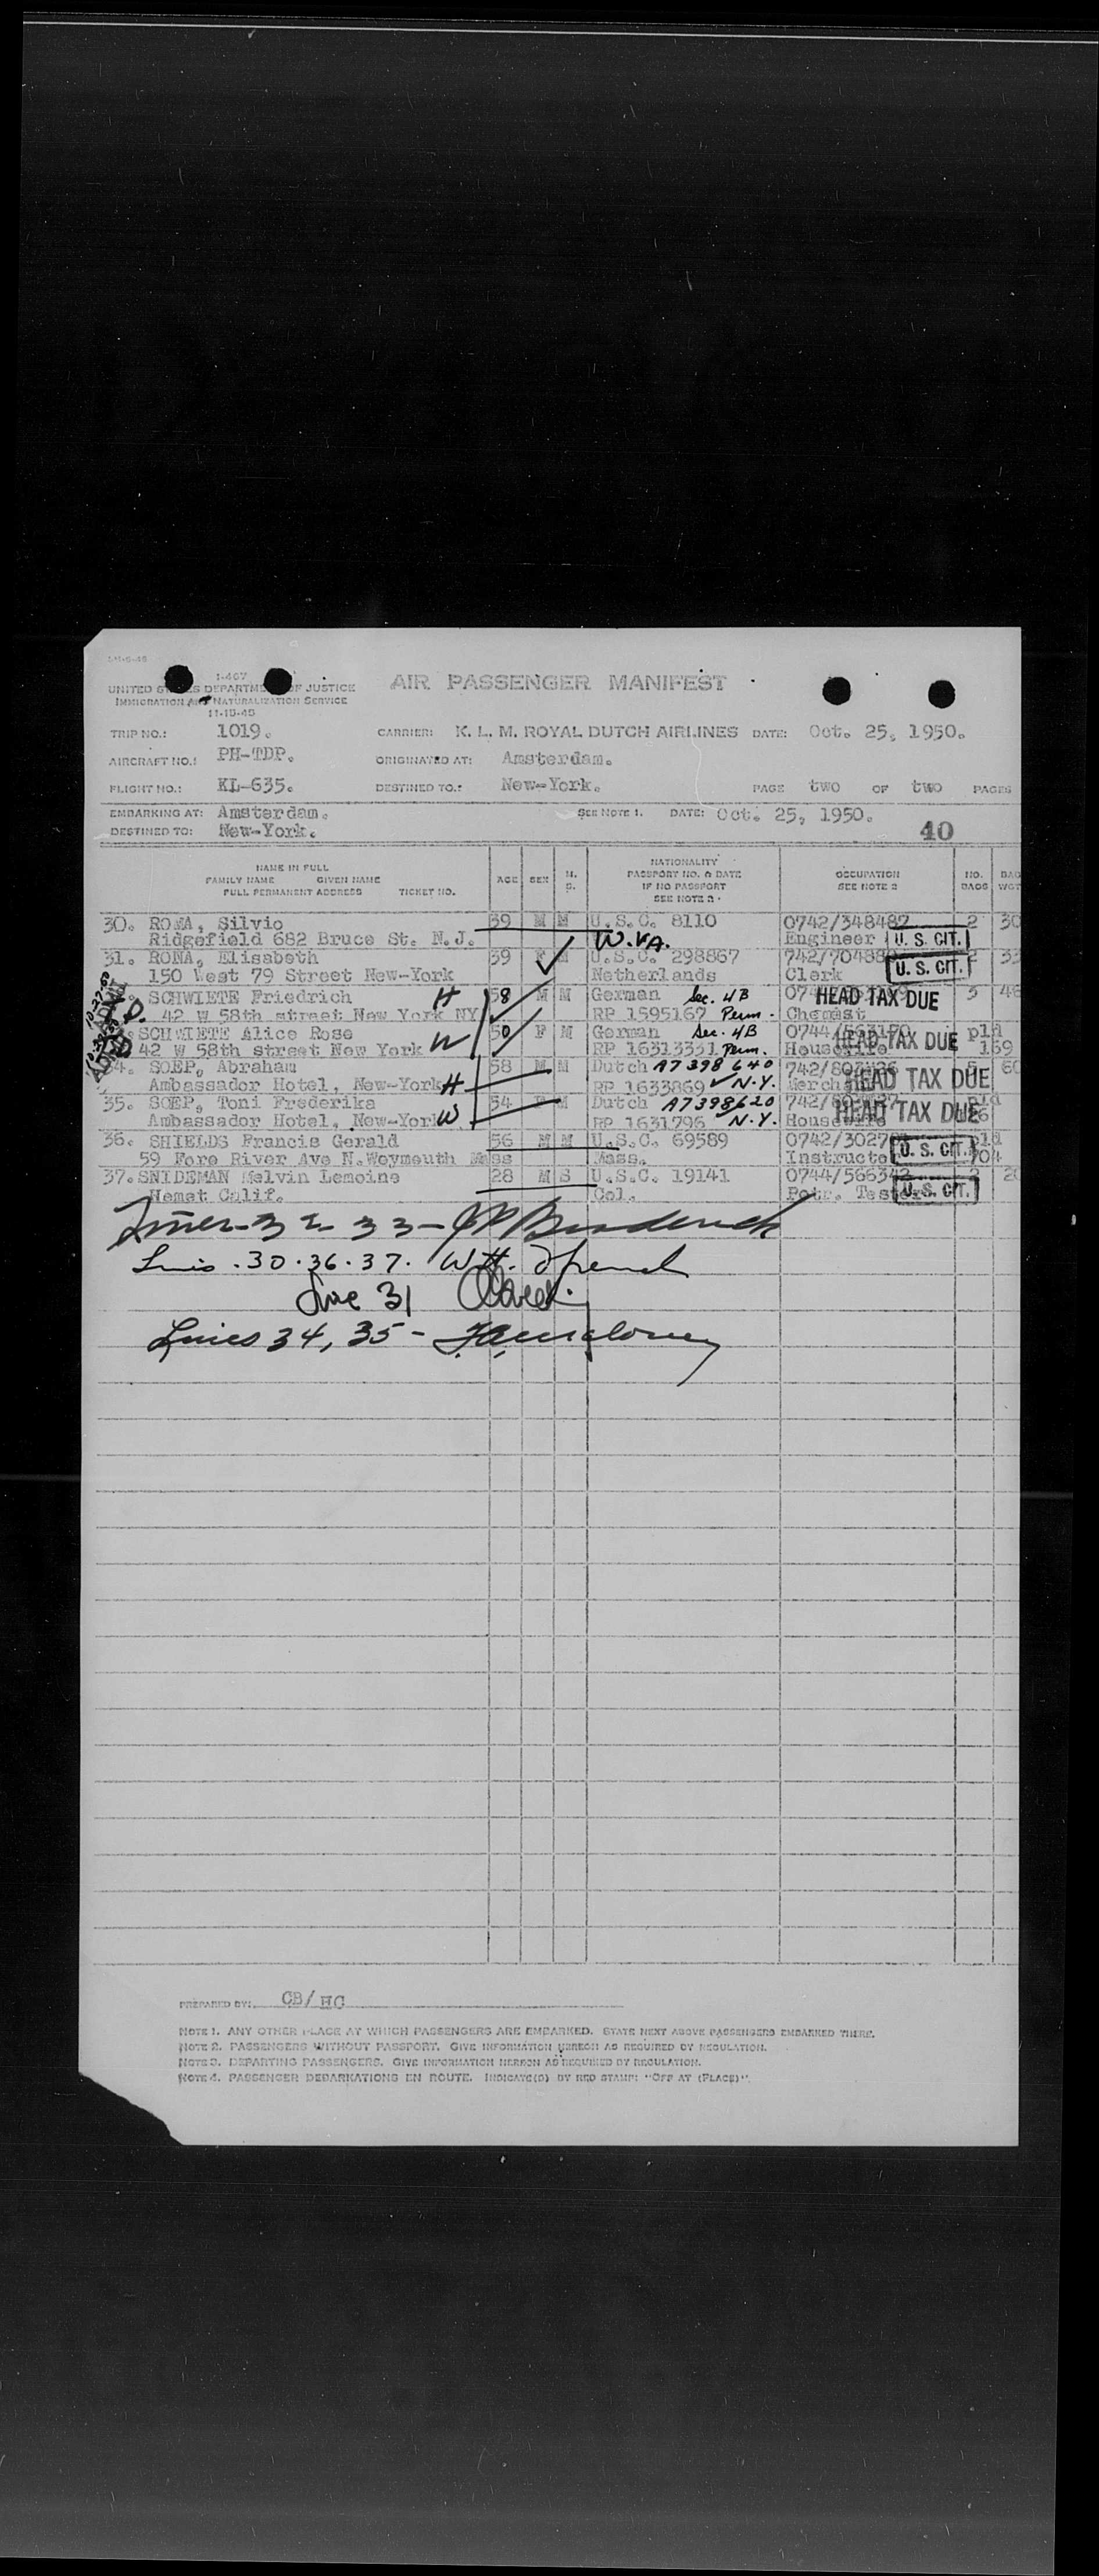 I-407
UNITED STATES DEPARTMENT OF JUSTICE
IMMIGRATION AND NATURALIZATION SERVICE
11-15-45
AIR PASSENGER MANIFEST
TRIP NO.: 1019. CARRIER: K. L. M. ROYAL DUTCH AIRLINES DATE: Oct. 25, 1950.
AIRCRAFT NO.: PH-TDP. ORIGINATED AT: Amsterdam.
FLIGHT NO.: KL-635. DESTINED TO.: New-York. PAGE two OF two PAGES
EMBARKING AT: Amsterdam. SEE NOTE 1. DATE: Oct. 25, 1950.
DESTINED TO: New-York. 40
NAME IN FULL
FAMILY NAME GIVEN NAME
FULL PERMANENT ADDRESS TICKET NO.
AGE SEX M. S.
NATIONALITY
PASSPORT NO. & DATE
IF NO PASSPORT
SEE NOTE 2.
OCCUPATION
SEE NOTE 3
NO. BAGS
BAG WGT
30. ROMA, Silvio 39 M M U.S.C. 8110 0742/348487 2 30
Ridgefield 682 Bruce St. N.J. W.VA. Engineer U. S. CIT.
31. RONA, Elisabeth 39 F M U.S.C. 298867 742/70488 2 33
150 West 79 Street New-York Netherlands Clerk U. S. CIT.
SCHWIETE Friedrich H 58 M M German Sec. 4B HEAD TAX DUE 3 48
42 W 58th street New York NY RP 1595167 Perm. Chemist
SCHWIETE Alice Rose 50 F M German Sec. 4B 0744 HEAD TAX DUE pld
42 W 58th street New York W RP 16313331 Perm. Housewife 169
34. SOEP, Abraham 58 M M Dutch A7398640 742/ 5 60
Ambassador Hotel, New-York H RP 1633869 N.Y. Merch HEAD TAX DUE
35. SOEP, Toni Frederika 54 F M Dutch A7398620 742/ pld
Ambassador Hotel, New-York W RP 1631796 N.Y. Housewife HEAD TAX DUE
36. SHIELDS Francis Gerald 56 M M U.S.C. 69589 0742/3027 pld
59 Fore River Ave N.Weymouth Mass Mass. Instructo U. S. CIT. 704
37. SNIDEMAN Melvin Lemoine 28 M S U.S.C. 19141 0744/566342 2 20
Hemet Calif. Col. Petr. Tester U. S. CIT.
32 33
30.36.37. W.H.
Line 31
Lines 34, 35 -
PREPARED BY: CB/HC
NOTE 1. ANY OTHER PLACE AT WHICH PASSENGERS ARE EMBARKED. STATE NEXT ABOVE PASSENGERS EMBARKED THERE.
NOTE 2. PASSENGERS WITHOUT PASSPORT. GIVE INFORMATION HEREON AS REQUIRED BY REGULATION.
NOTE 3. DEPARTING PASSENGERS. GIVE INFORMATION HEREON AS REQUIRED BY REGULATION.
NOTE 4. PASSENGER DEBARKATIONS EN ROUTE. INDICATE(S) BY RED STAMP: "OFF AT (PLACE)".